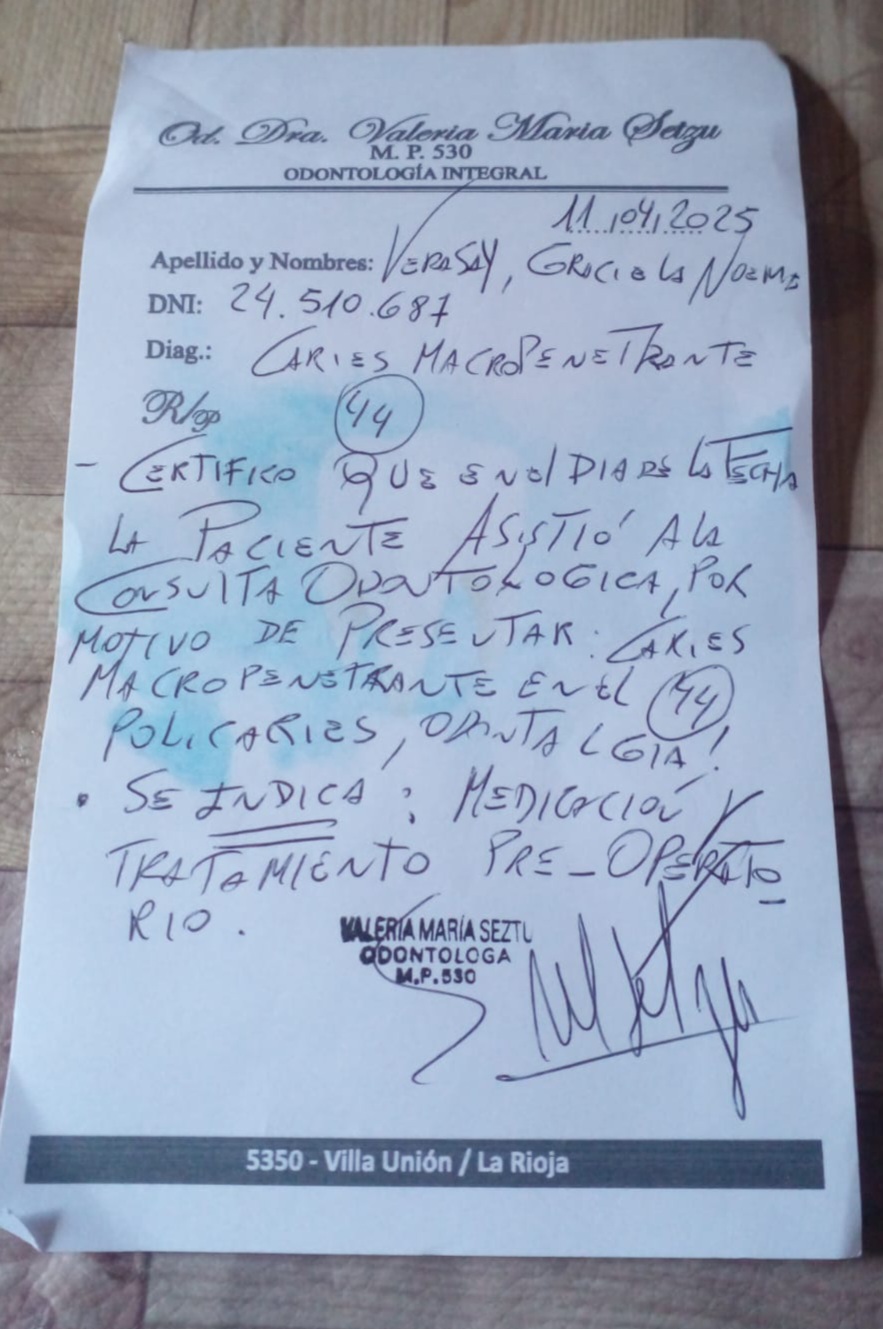 Od. Dra. Valeria Maria Seizu
M. P. 530
ODONTOLOGÍA INTEGRAL
11/04/2025
Apellido y Nombres: VERASAY, GRACIELA NOEMI
DNI: 24.510.687
Diag.: CARIES MACROPENETRANTE
R/p 44
- CERTIFICO QUE EN El DIA DE LA FECHA
LA PACIENTE ASISTIÓ A LA
CONSULTA ODONTOLOGICA, POR
MOTIVO DE PRESENTAR: CARIES
MACROPENETRANTE EN El 44
POLICARIES, ODONTALGIA!
• SE INDICA: MEDICACIÓN Y
TRATAMIENTO PRE-OPERATO
RIO.
VALERÍA MARÍA SEZTU
ODONTOLOGA
M.P.530
5350 - Villa Unión / La Rioja